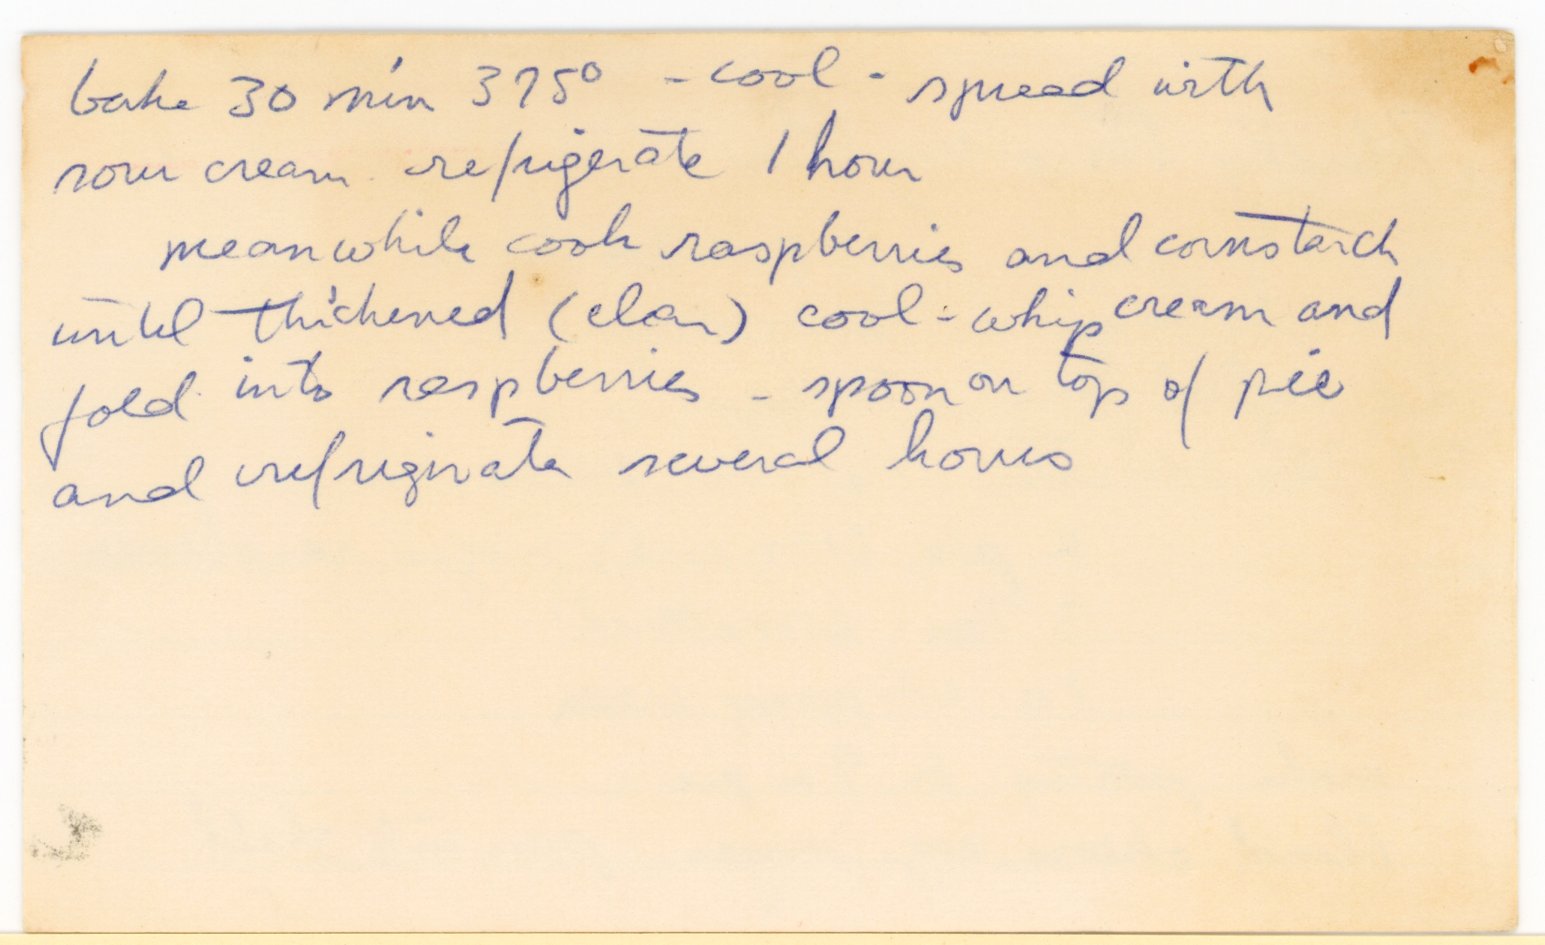 bake 30 min 375° - cool - spread with
sour cream. refrigerate 1 hour
meanwhile cook raspberries and cornstarch
until thickened (clear) cool - whip cream and
fold into raspberries - spoon on top of pie
and refrigerate several hours